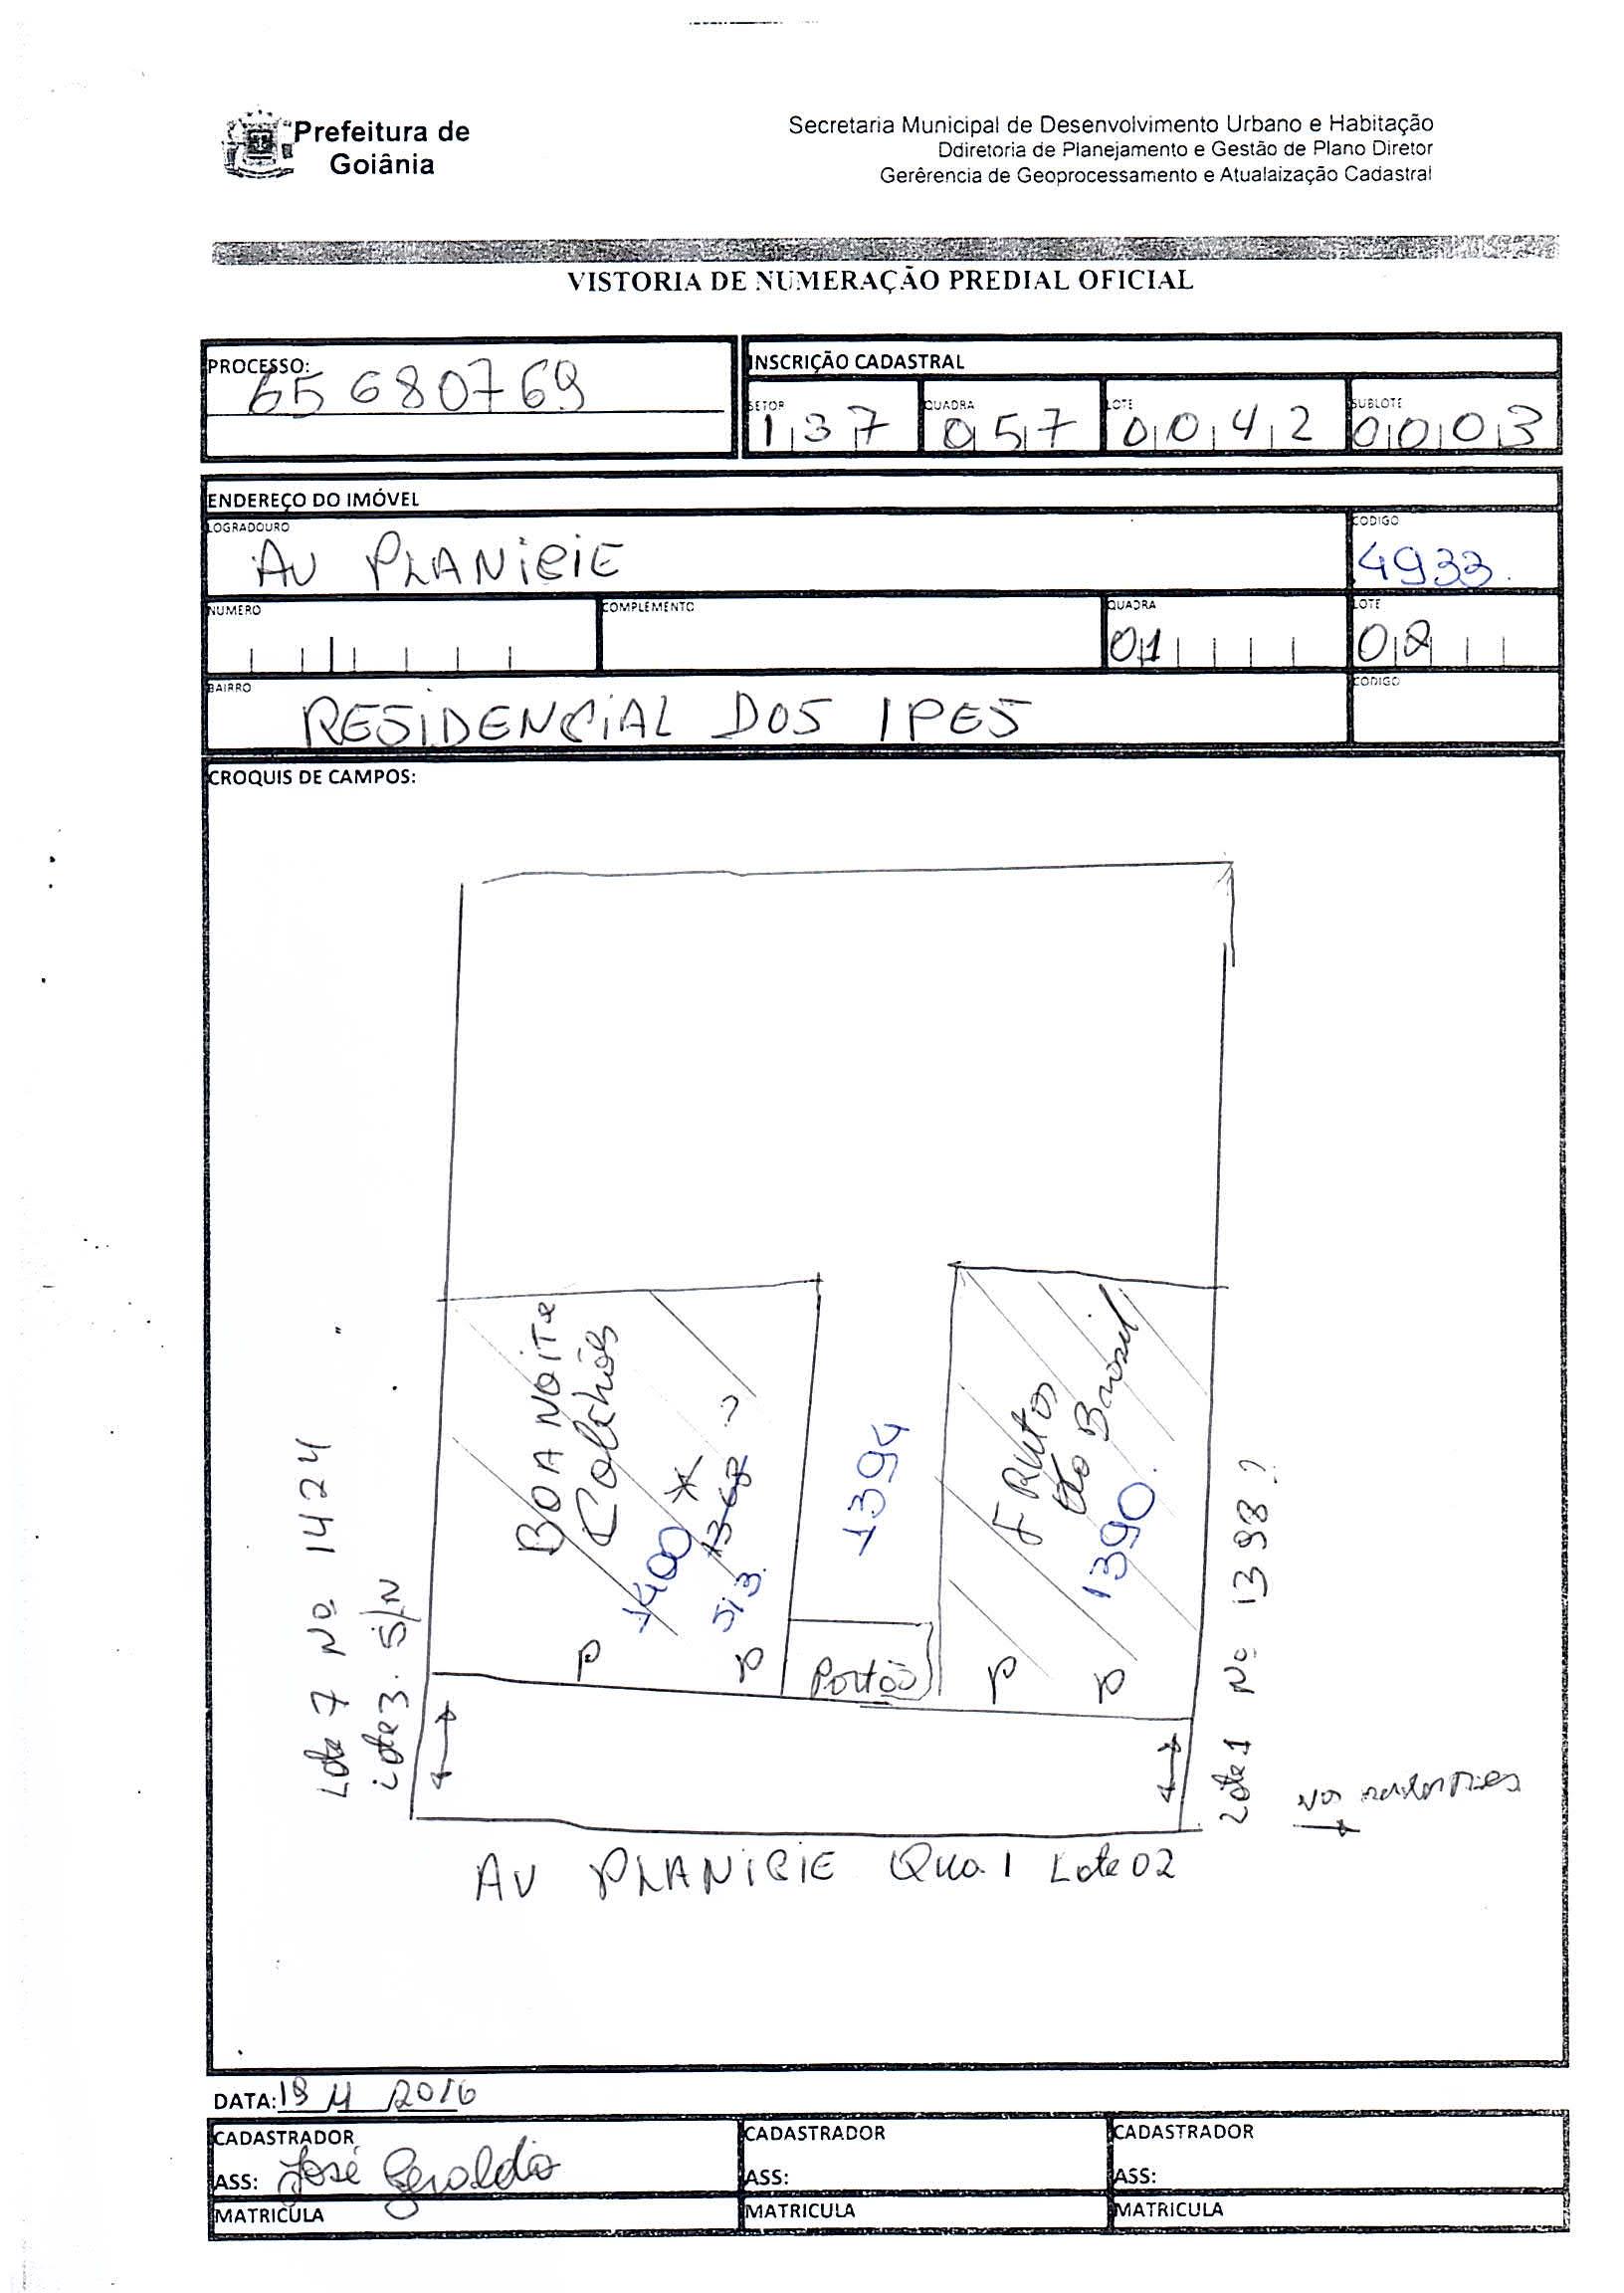 Prefeitura de
Goiânia
Secretaria Municipal de Desenvolvimento Urbano e Habitação
Ddiretoria de Planejamento e Gestão de Plano Diretor
Gerêrencia de Geoprocessamento e Atualaização Cadastral
VISTORIA DE NUMERAÇÃO PREDIAL OFICIAL
PROCESSO:
65680769
INSCRIÇÃO CADASTRAL
SETOR QUADRA LOTE SUBLOTE
137 057 0042 0003
ENDEREÇO DO IMÓVEL
LOGRADOURO CODIGO
AV PLANICIE 4933
NUMERO COMPLEMENTO QUADRA LOTE
01 02
BAIRRO CODIGO
RESIDENCIAL DOS IPES
CROQUIS DE CAMPOS:
BOA NOITE
Colchões
1400 *
1368 ?
1394
FRUtos
do Brasil
1390
P P Portão P P
Lote 7 No 1424
Lote 3. S/N
Lote 1 No 1398?
AV PLANICIE Qua. 1 Lote 02
DATA: 18 11 2016
CADASTRADOR CADASTRADOR CADASTRADOR
ASS: José Geraldo ASS: ASS:
MATRICULA MATRICULA MATRICULA